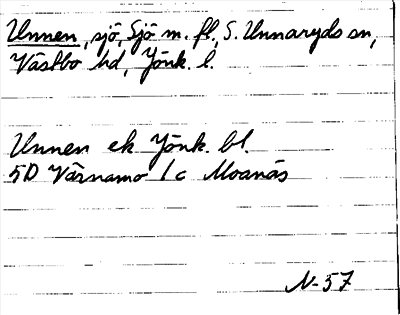 Unnen, sjö, Sjö m. fl., S. Unnaryds sn,
Västbo hd, Jönk. l.
Unnen ek Jönk. bl.
5D Värnamo 1c Moanäs
N-57